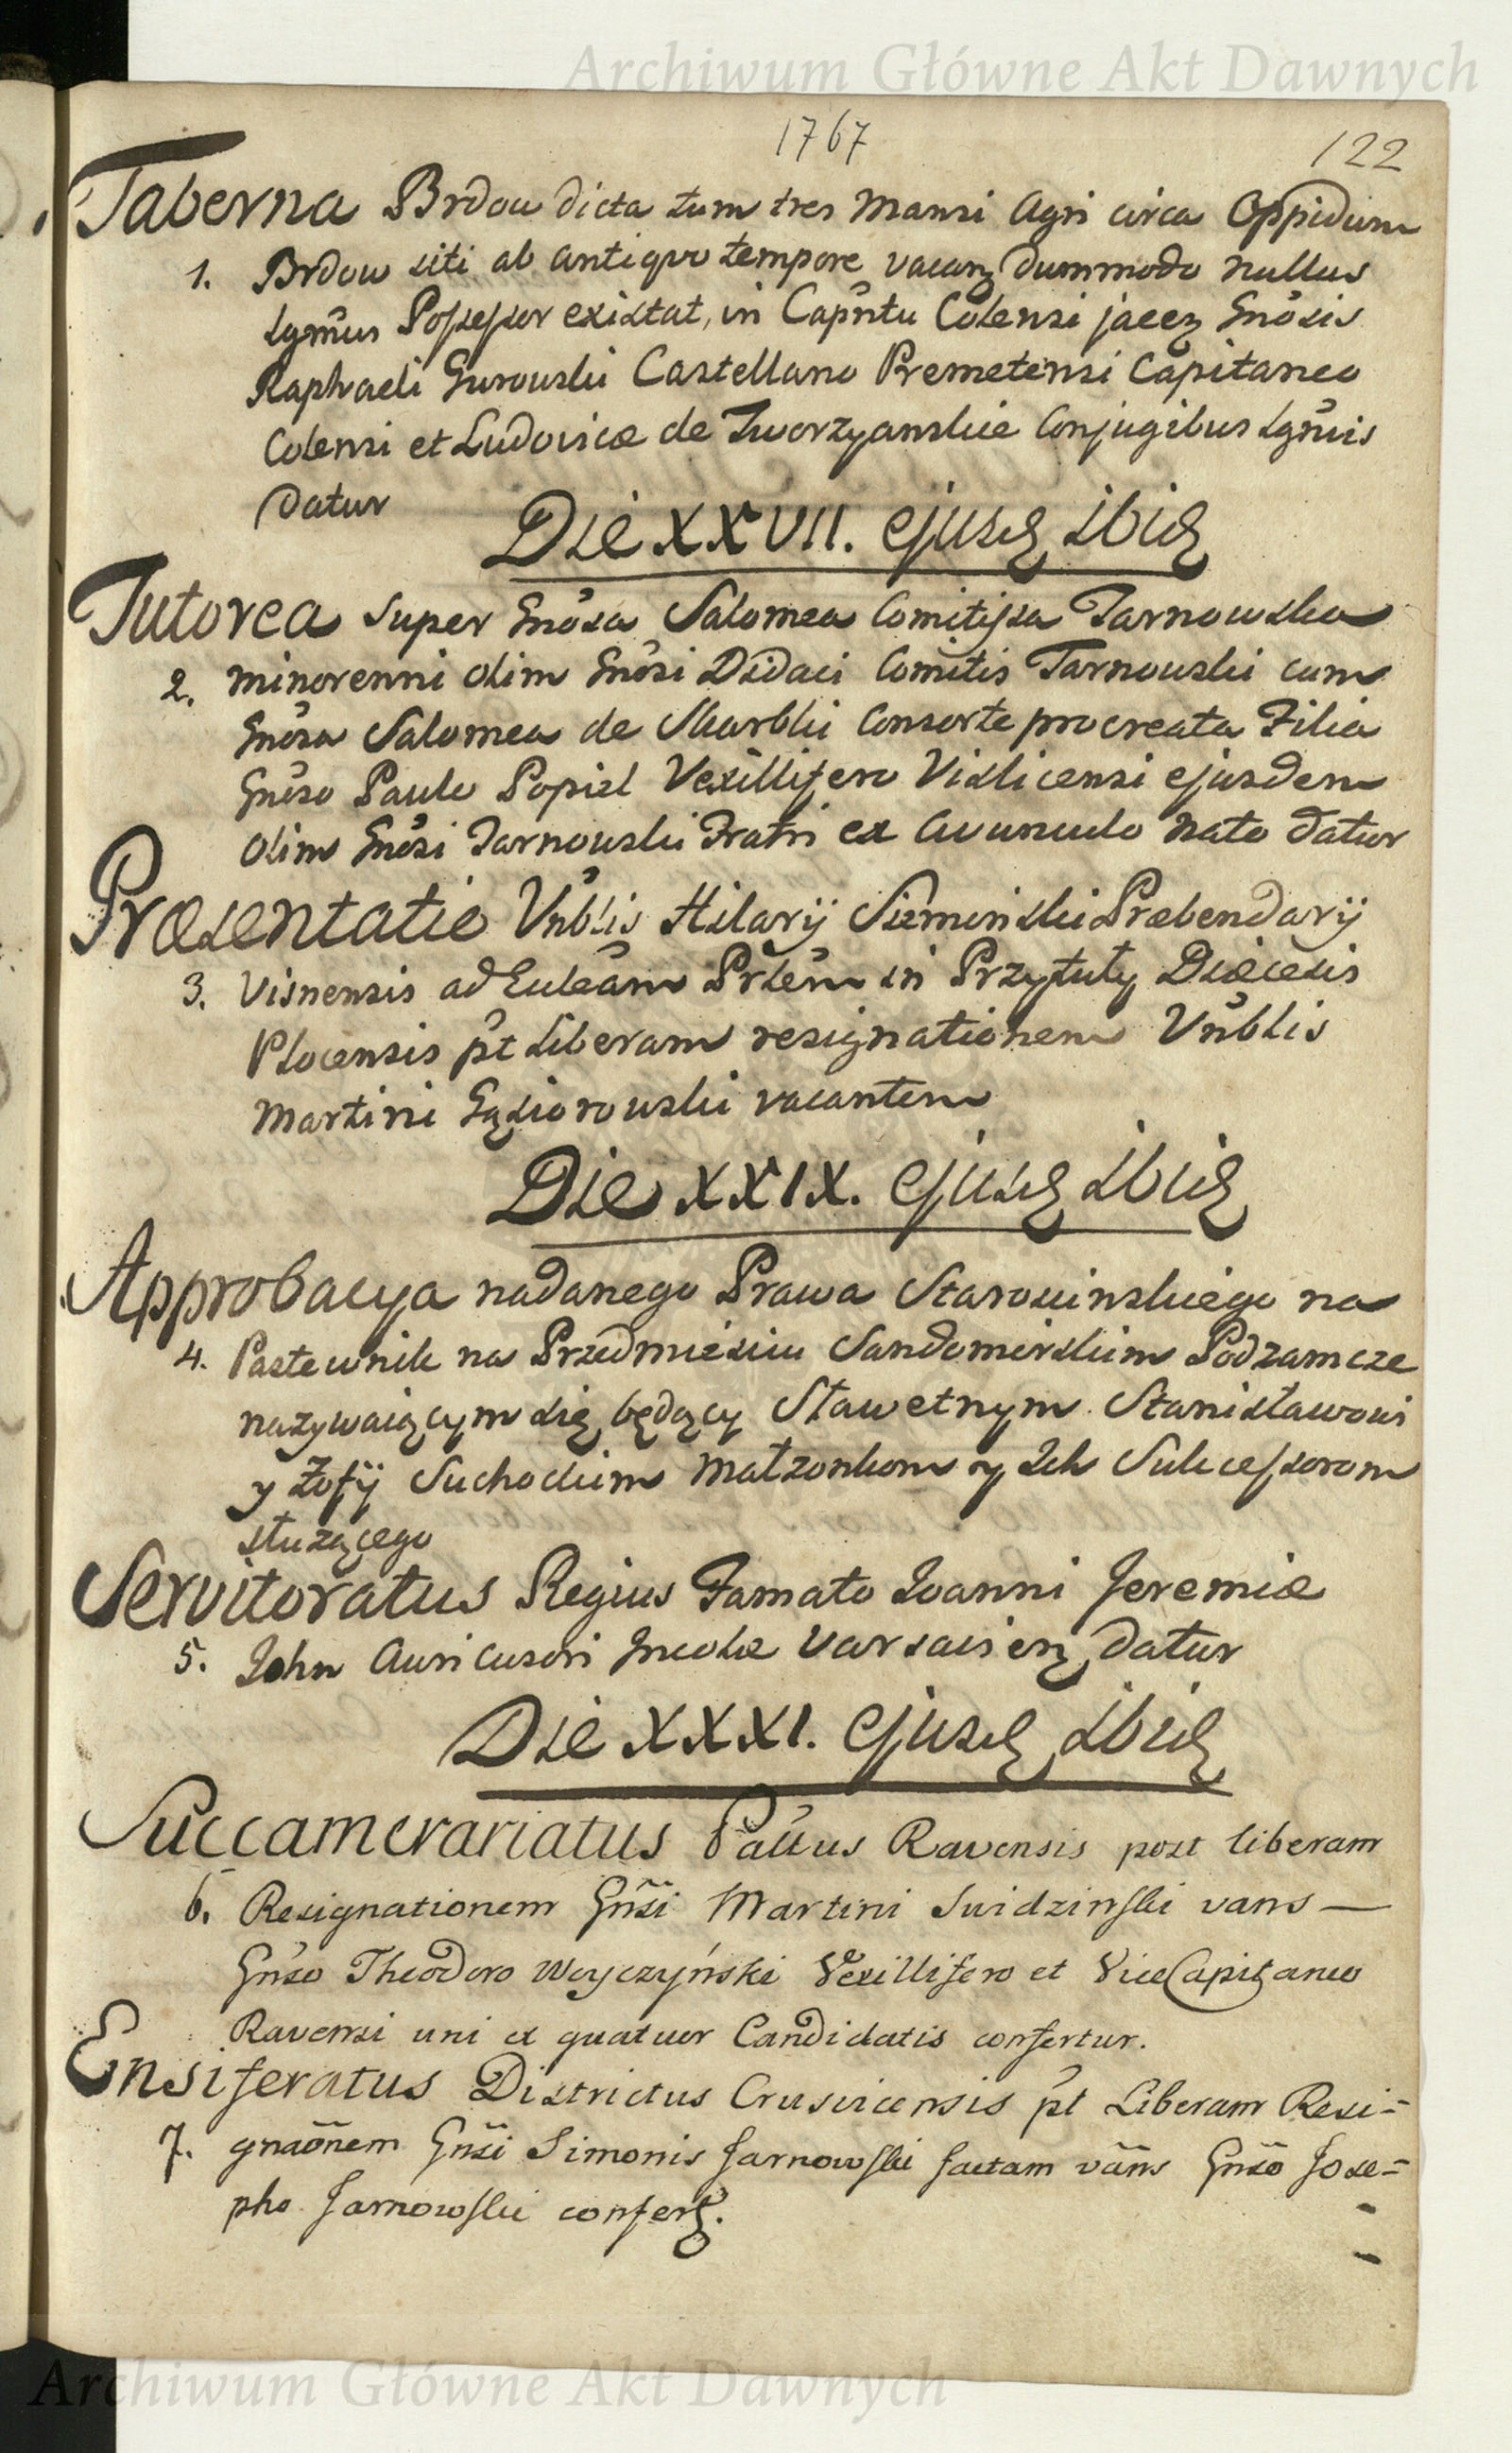 Archiwum Główne Akt Dawnych
1767
122
Taberna Brdow dicta tum tres Mansi Agri circa Oppidum
1. Brdow siti ab antiquo tempore vacanz dummodo nullus
Lgmus Possessor existat, in Capntu Colensi jacenz Gnosis
Raphaeli Gurowski Castellano Premetensi Capitaneo
Colensi et Ludovicæ de Tworzyanskie Conjugibus Lgmis
Datur
Die XXVII. ejusd ibid
Tutorea super Gnosa Salomea Comitissa Tarnowska
2. minorenni olim Gnosi Didaci Comitis Tarnowski cum
Gnosa Salomea de Skarbki Consorte procreata Filia
Gnoso Paulo Popiel Vexillifero Vislicensi ejusdem
olim Gnosi Tarnowski Fratri ex Avunculo nato datur
Præsentatio Vnblis Hilarij Siemieński Præbendarij
3. Visnensis ad Ecleam Prlem in Przytuły Diæcesis
Plocensis pt Liberam resignationem Vnblis
Martini Gąsiorowski vacantem
Die XXIX. ejusd ibid
Approbacya nadanego Prawa Starościnskiego na
4. Pastewnik na Przedmieściu Sandomirskim Podzamcze
nazywaiącym się będący Sławetnym Stanisławowi
y Zofij Suchockim Małzonkom y Ich Sukcessorom
słuzącego
Servitoratus Regius Famato Ioanni Jeremiæ
5. John Auricusori Incolæ Varsavienz datur
Die XXXI. ejusd ibid
Succamerariatus Pallus Ravensis post liberam
6. Resignationem Gnsi Martini Swidzinski vans —
Gnso Theodoro Woyczyński Vexillifero et ViceCapitaneo
Ravensi uni ex quatuor Candidatis confertur.
Ensiferatus Districtus Crusvicensis pt Liberam Resi=
7. gnaonem Gnsi Simonis Jarnowski factam vans Gnso Jose=
pho Jarnowski confert.
Archiwum Główne Akt Dawnych